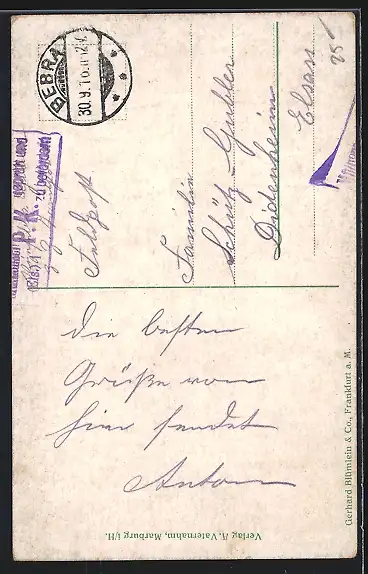 BEBRA
30.9.16
Geprüft und
P. K.
zu befördern
Feldpost
Familie
Schütz-Gubler
Didenheim
Elsass
25
Die besten
Grüße von
hier sendet
Anton
Verlag A. Vaternahm, Marburg i/H.
Gerhard Blümlein & Co., Frankfurt a. M.